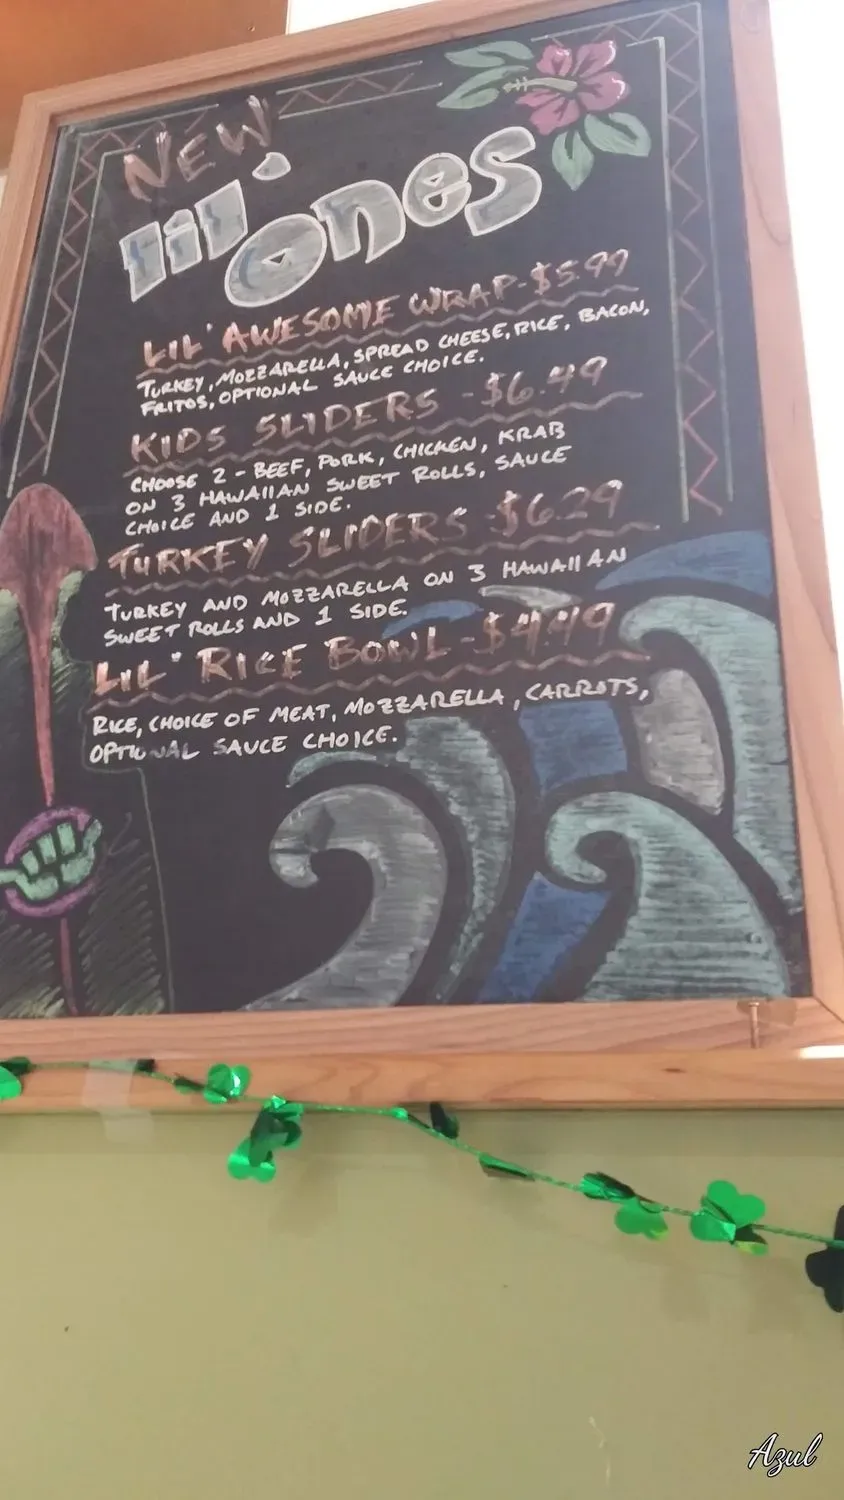 NEW
lil' Ones
LIL' AWESOME WRAP-$5.99
TURKEY, MOZZARELLA, SPREAD CHEESE, RICE, BACON,
FRITOS, OPTIONAL SAUCE CHOICE.
KIDS SLIDERS -$6.49
CHOOSE 2 - BEEF, PORK, CHICKEN, KRAB
ON 3 HAWAIIAN SWEET ROLLS, SAUCE
CHOICE AND 1 SIDE.
TURKEY SLIDERS -$6.29
TURKEY AND MOZZARELLA ON 3 HAWAIIAN
SWEET ROLLS AND 1 SIDE.
LIL' RICE BOWL-$4.49
RICE, CHOICE OF MEAT, MOZZARELLA, CARROTS,
OPTIONAL SAUCE CHOICE.
Azul